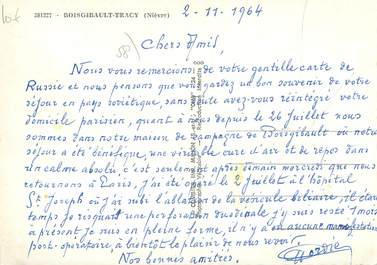 lot
58)
281227 - BOISGIBAULT-TRACY (Nièvre)
2-11-1964
Chers Amil,
Nous vous remercions de votre gentille carte de
Russie et nous pensons que vous gardez un bon souvenir de votre
séjour en pays soviétique, sans doute avez-vous réintégré votre
domicile parisien, quant à nous depuis le 26 Juillet nous
sommes dans notre maison de campagne de Boisgibault où notre
séjour a été bénéfique, une véritable cure d'air et de repos dans
un calme absolu c'est seulement après demain mercredi que nous
retournons à Paris, j'ai été opéré le 2 Juillet à l'hôpital
St Joseph où j'ai subi l'ablation de la vésicule biliaire, il était
temps je risquait une perforation duodénale j'y suis resté 1 mois
à présent je suis en pleine forme, il n'y a eu aucune manifestation
post-opératoire, à bientôt le plaisir de nous revoir.
Nos bonnes amitiés.
Reproduction interdite